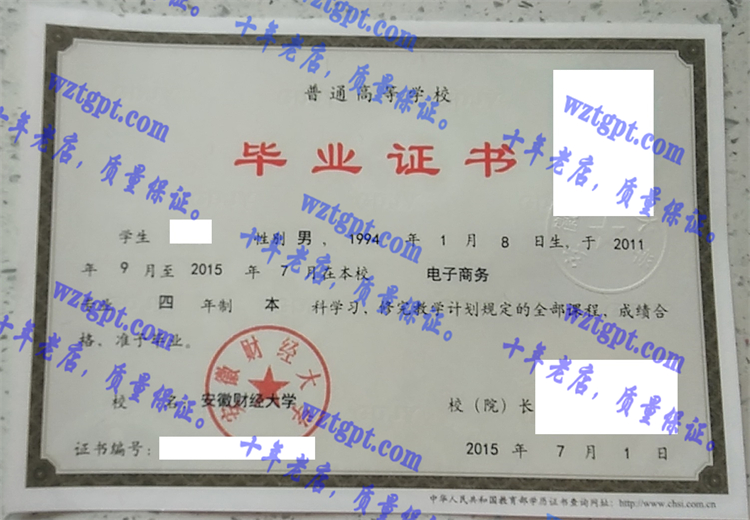 普通高等学校
毕业证书
学生 性别 男 ，1994 年 1 月 8 日生，于 2011
年 9 月至 2015 年 7 月在本校 电子商务
四 年制 本 科学习、修完教学计划规定的全部课程，成绩合
格，准予毕业。
校 名 安徽财经大学 校（院）长
安徽财经大学
证书编号： 2015 年 7 月 1 日
中华人民共和国教育部学历证书查询网址：http://www.chsi.com.cn
wztgpt.com
十年老店，质量保证。
wztgpt.com
十年老店，质量保证。
wztgpt.com
十年老店，质量保证。
wztgpt.com
十年老店，质量保证。
wztgpt.com
十年老店，质量保证。
wztgpt.com
十年老店，质量保证。
wztgpt.com
十年老店，质量保证。
wztgpt.com
十年老店，质量保证。